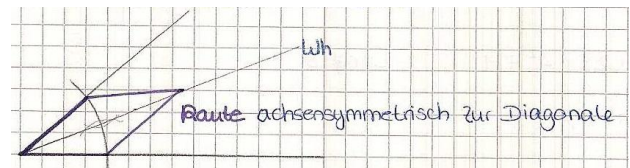 Wh
Raute achsensymmetrisch zur Diagonale